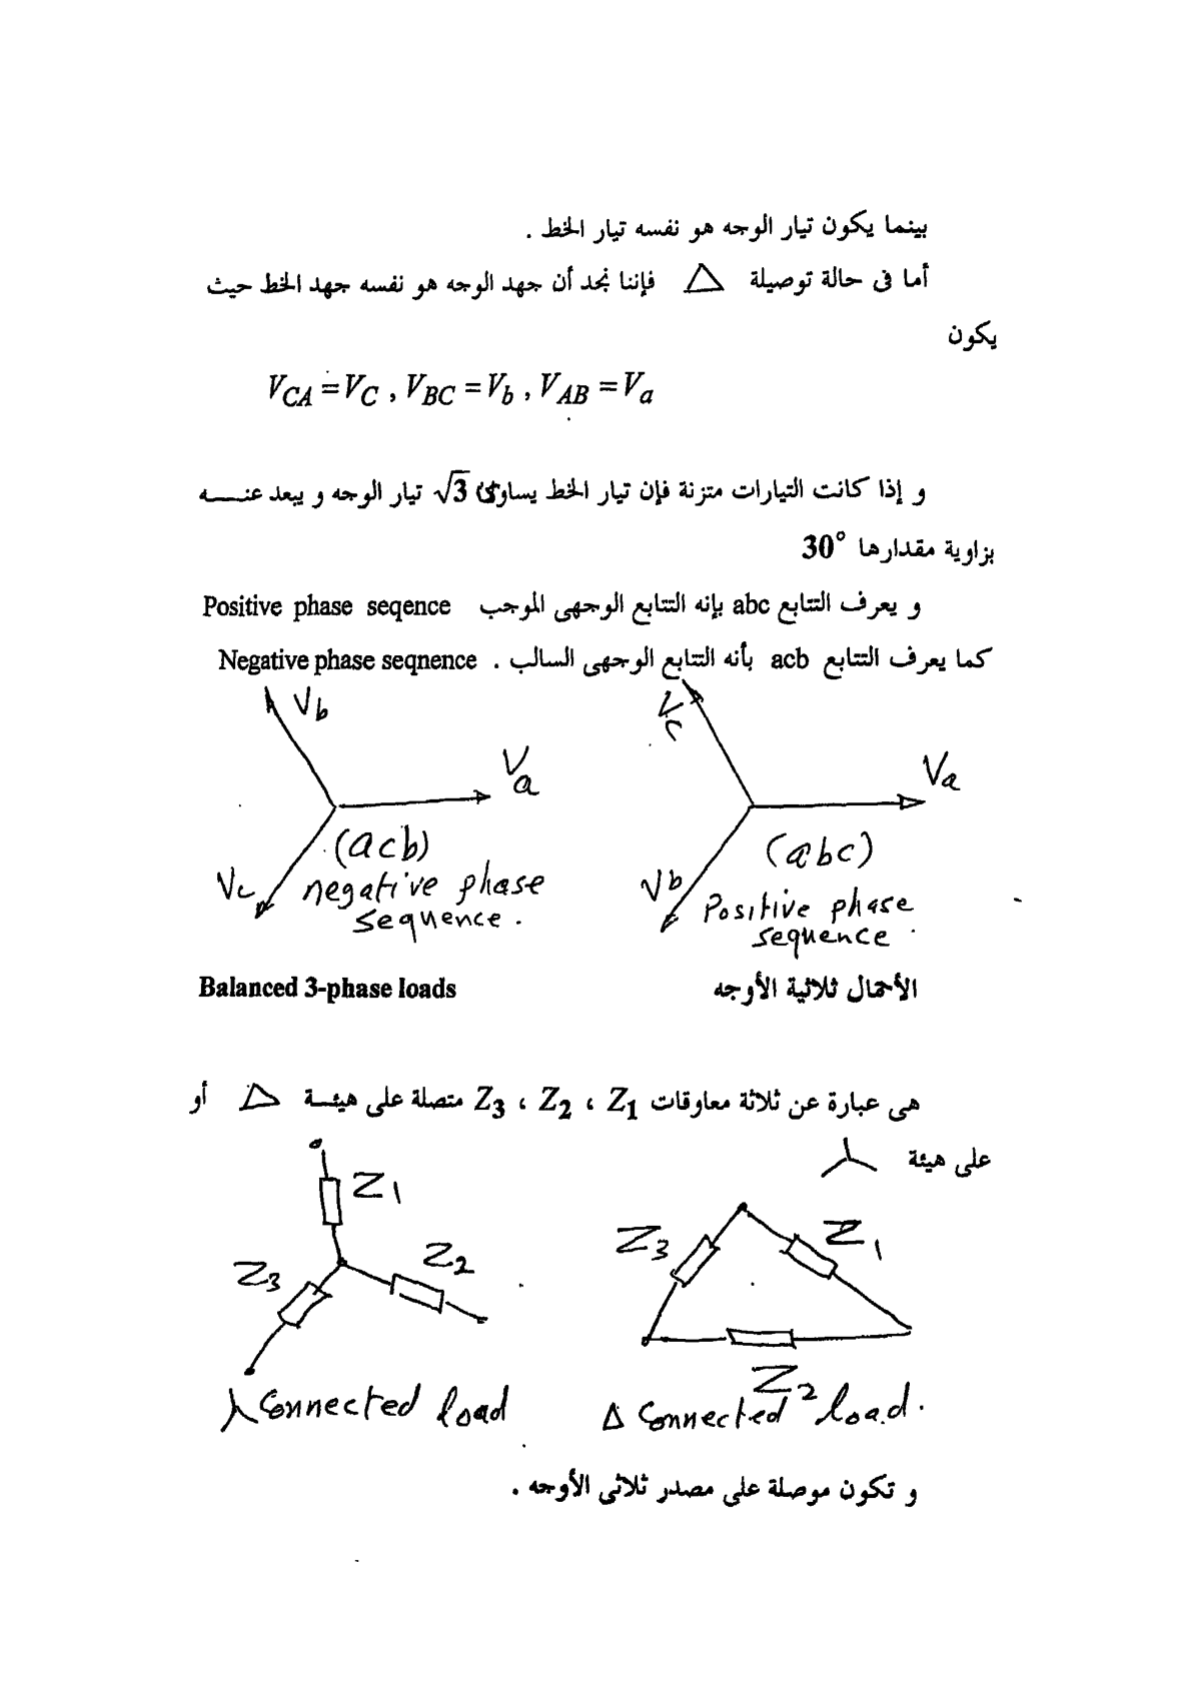 بينما يكون تيار الوجه هو نفسه تيار الخط .
أما فى حالة توصيلة △ فإننا نجد أن جهد الوجه هو نفسه جهد الخط حيث
يكون
V_CA = V_C , V_BC = V_b , V_AB = V_a
و إذا كانت التيارات متزنة فإن تيار الخط يساوى √3 تيار الوجه و يبعد عنـــه
بزاوية مقدارها 30°
و يعرف التتابع abc بإنه التتابع الوجهى الموجب Positive phase seqence
كما يعرف التتابع acb بأنه التتابع الوجهى السالب . Negative phase seqnence
Vc
Va
Vb
(abc)
Positive phase
sequence
Vb
Va
Vc
(acb)
negative phase
sequence .
الأحمال ثلاثية الأوجه Balanced 3-phase loads
هى عبارة عن ثلاثة معاوقات Z1 ، Z2 ، Z3 متصلة على هيئـة △ أو
على هيئة
Z3
Z1
Z2
Δ Connected load.
Z1
Z2
Z3
⅄ Connected load
و تكون موصلة على مصدر ثلاثى الأوجه .